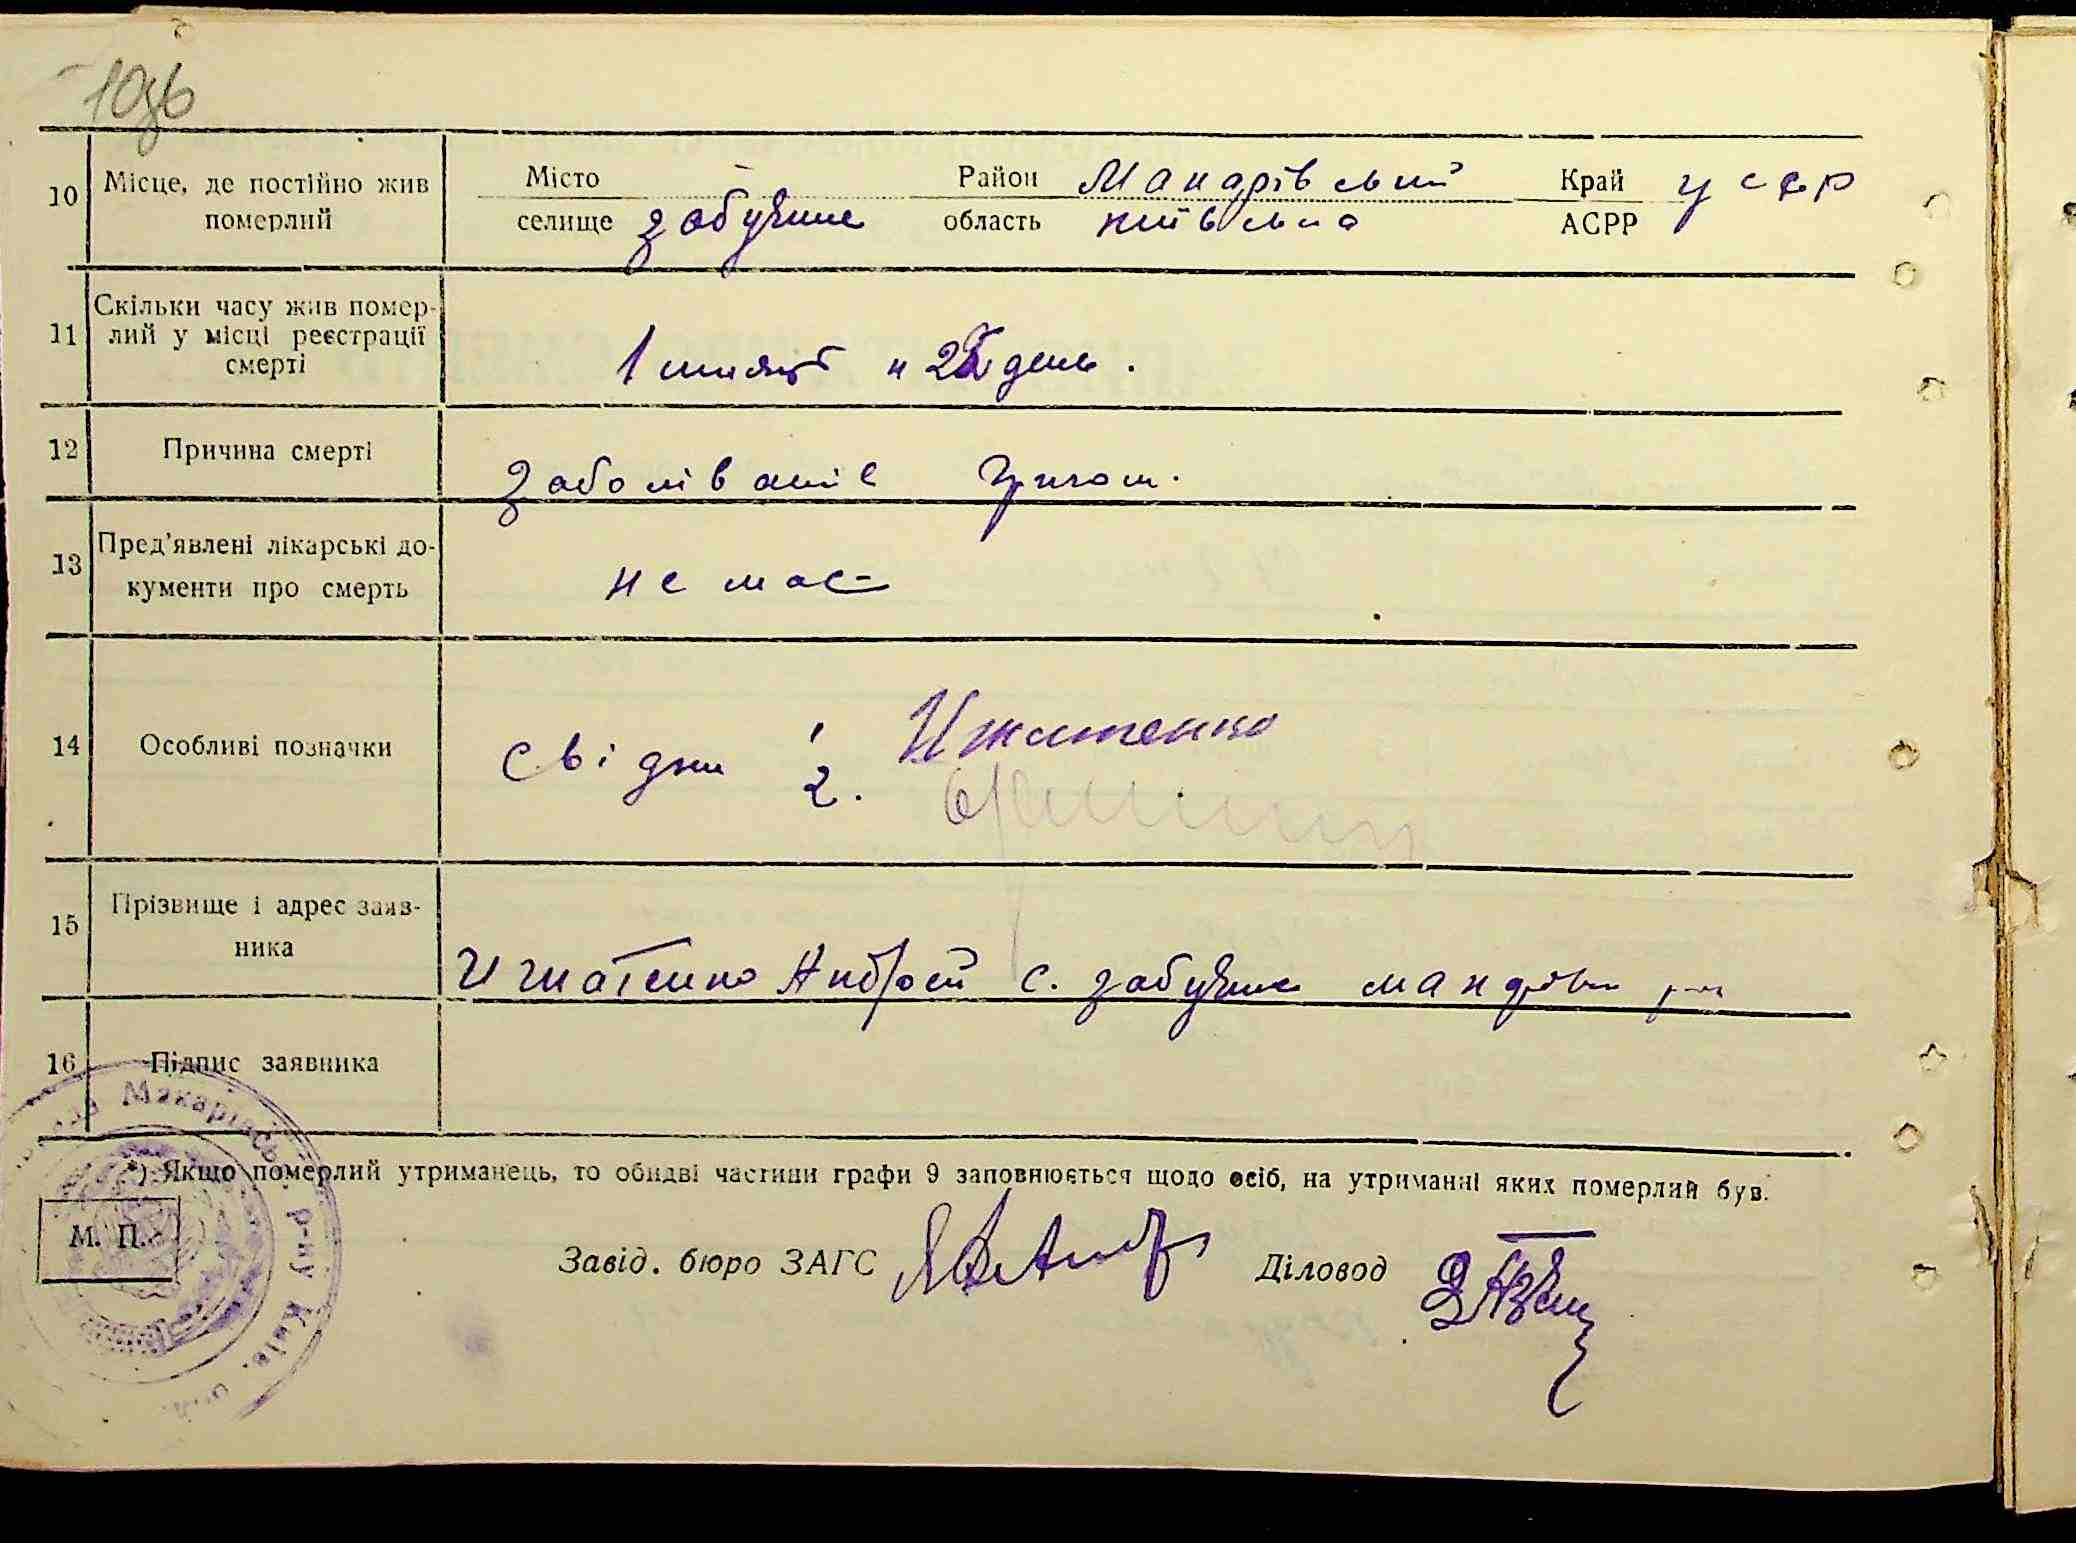 10зв
10 Місце, де постійно жив померлий
Місто Район Макарівський Край УССР
селище Забуяння область Київська АСРР
11 Скільки часу жив помер-
лий у місці реєстрації
смерті
1 місяць и 2 день.
12 Причина смерті
Заболіваніє грипом.
13 Пред'явлені лікарські до-
кументи про смерть
не має
14 Особливі позначки
Свідки 1 Игнатенко
2.
15 Прізвище і адрес заяв-
ника
Игнатенко Андрей с. Забуяння Макарівськ р-н
16 Підпис заявника
Макарівсь. р-ну Київ. обл.
*) Якщо померлий утриманець, то обидві частини графи 9 заповнюється щодо осіб, на утриманні яких померлий був.
М. П.
Завід. бюро ЗАГС Діловод